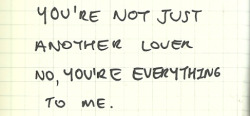 YOU'RE NOT JUST
ANOTHER LOVER
NO, YOU'RE EVERYTHING
TO ME.